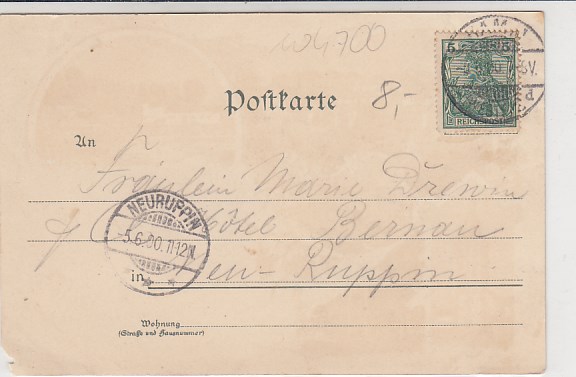 104700
5 5
REICHSPOST
Postkarte
8,-
An
Fräulein Marie Drewin
Hôtel Bernau
in Neu-Ruppin
NEURUPPIN
-5.6.00.11-12V.
Wohnung
(Straße und Hausnummer)